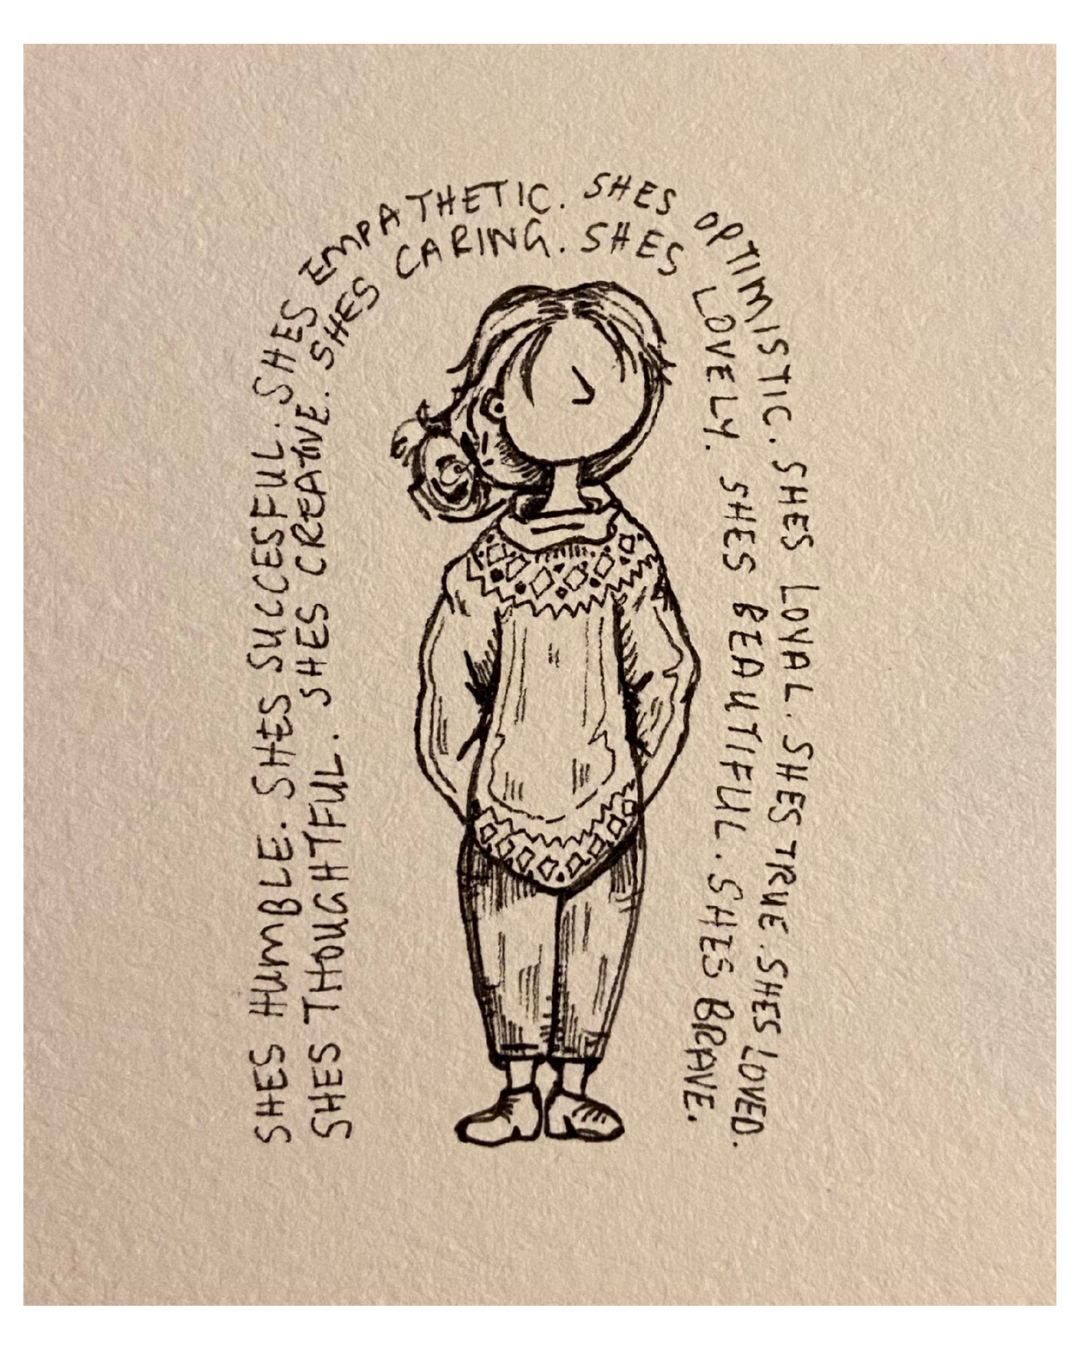 SHES HUMBLE. SHES SUCCESFUL. SHES EMPATHETIC. SHES OPTIMISTIC. SHES LOYAL. SHES TRUE. SHES LOVED.
SHES THOUGHTFUL. SHES CREATIVE. SHES CARING. SHES LOVELY. SHES BEAUTIFUL. SHES BRAVE.